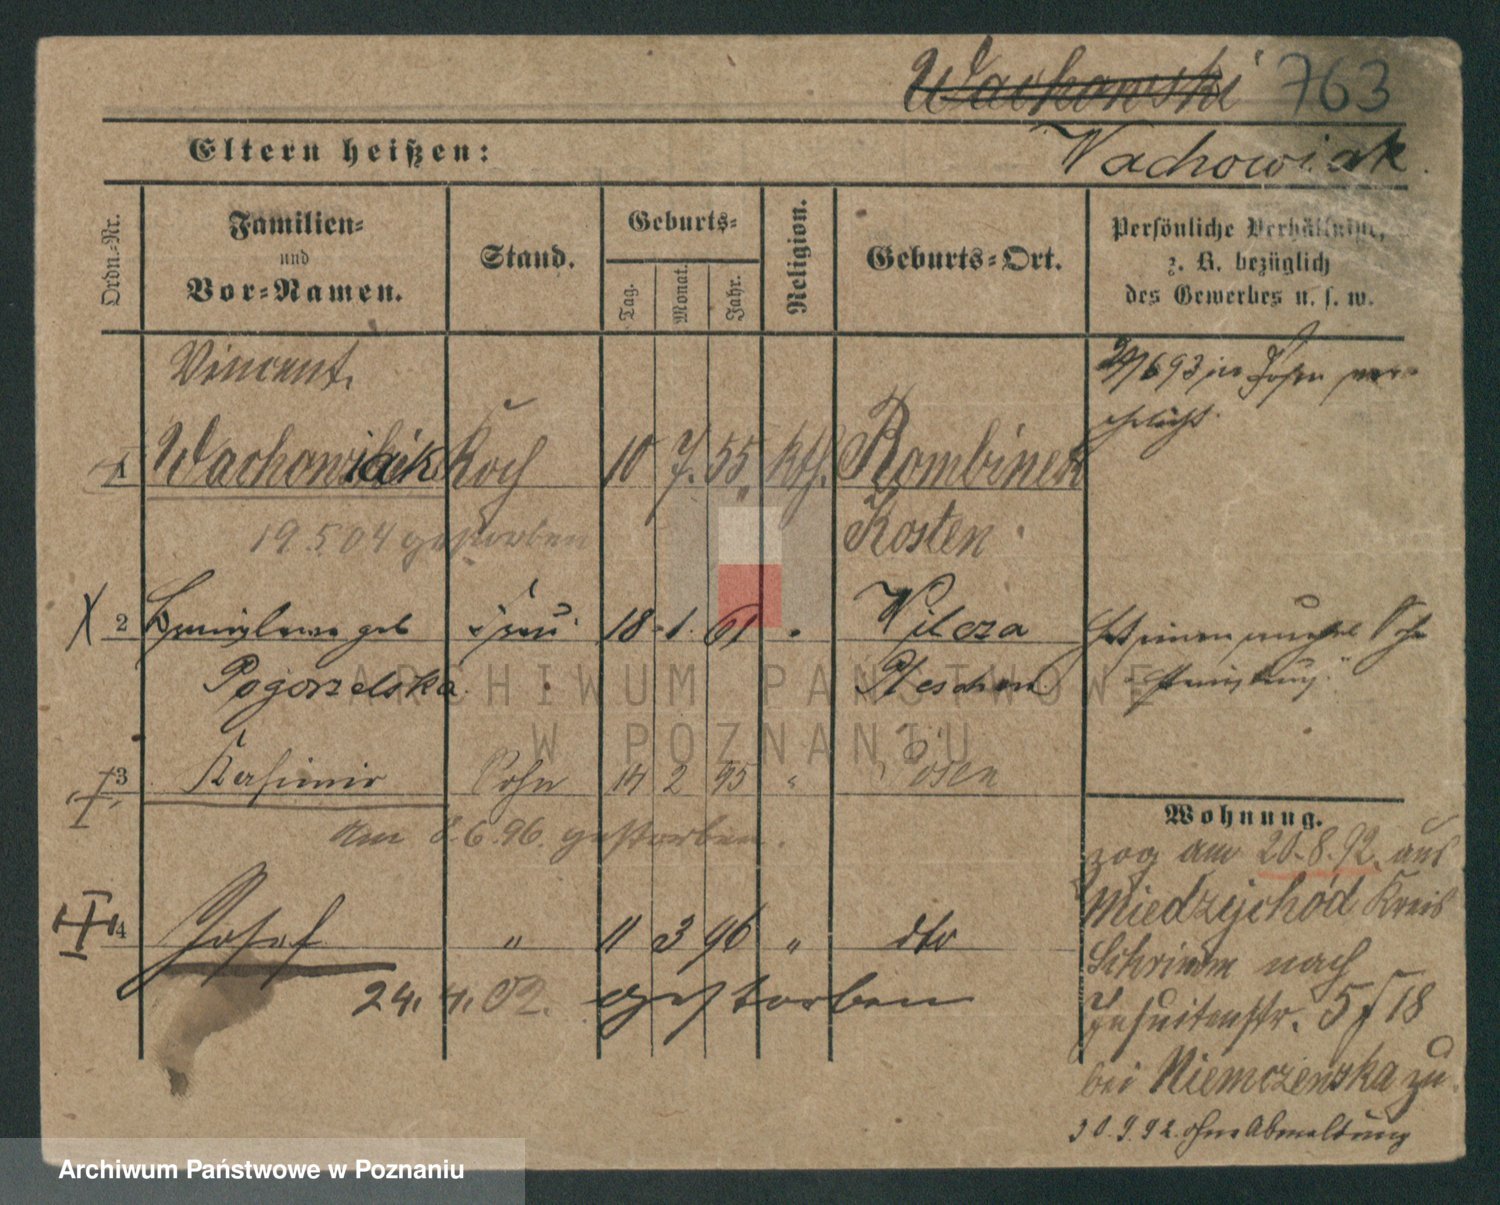 Wachowski 763
Eltern heißen:
Wachowiak.
Ordn.-Nr.
Familien-
und
Vor-Namen.
Stand.
Geburts-
Tag.
Monat.
Jahr.
Religion.
Geburts-Ort.
Persönliche Verhältnisse,
z. B. bezüglich
des Gewerbes u. s. w.
Vincent.
1 Wachowiak Koch 10 7. 55 kth. Rombinek
Kosten
19 5 04 gestorben
6 93 in Posen ver-
ehelicht.
2 geb 18 1. 61 Wilcza
Pogorzelska Pleschen
3 Kasimir Sohn 14 2 95 " Posen
am 8.6.96. gestorben.
4 Josef " 11 3 96 " dto
24. 4. 02. gestorben
Wohnung.
zog am 20.8.92. aus
Miedzychod Kreis
Schrimm nach
Jesuitenstr. 5 18
bei Niemczewska zu.
30.9.92. ohne Abmeldung
ARCHIWUM PAŃSTWOWE
W POZNANIU
Archiwum Państwowe w Poznaniu